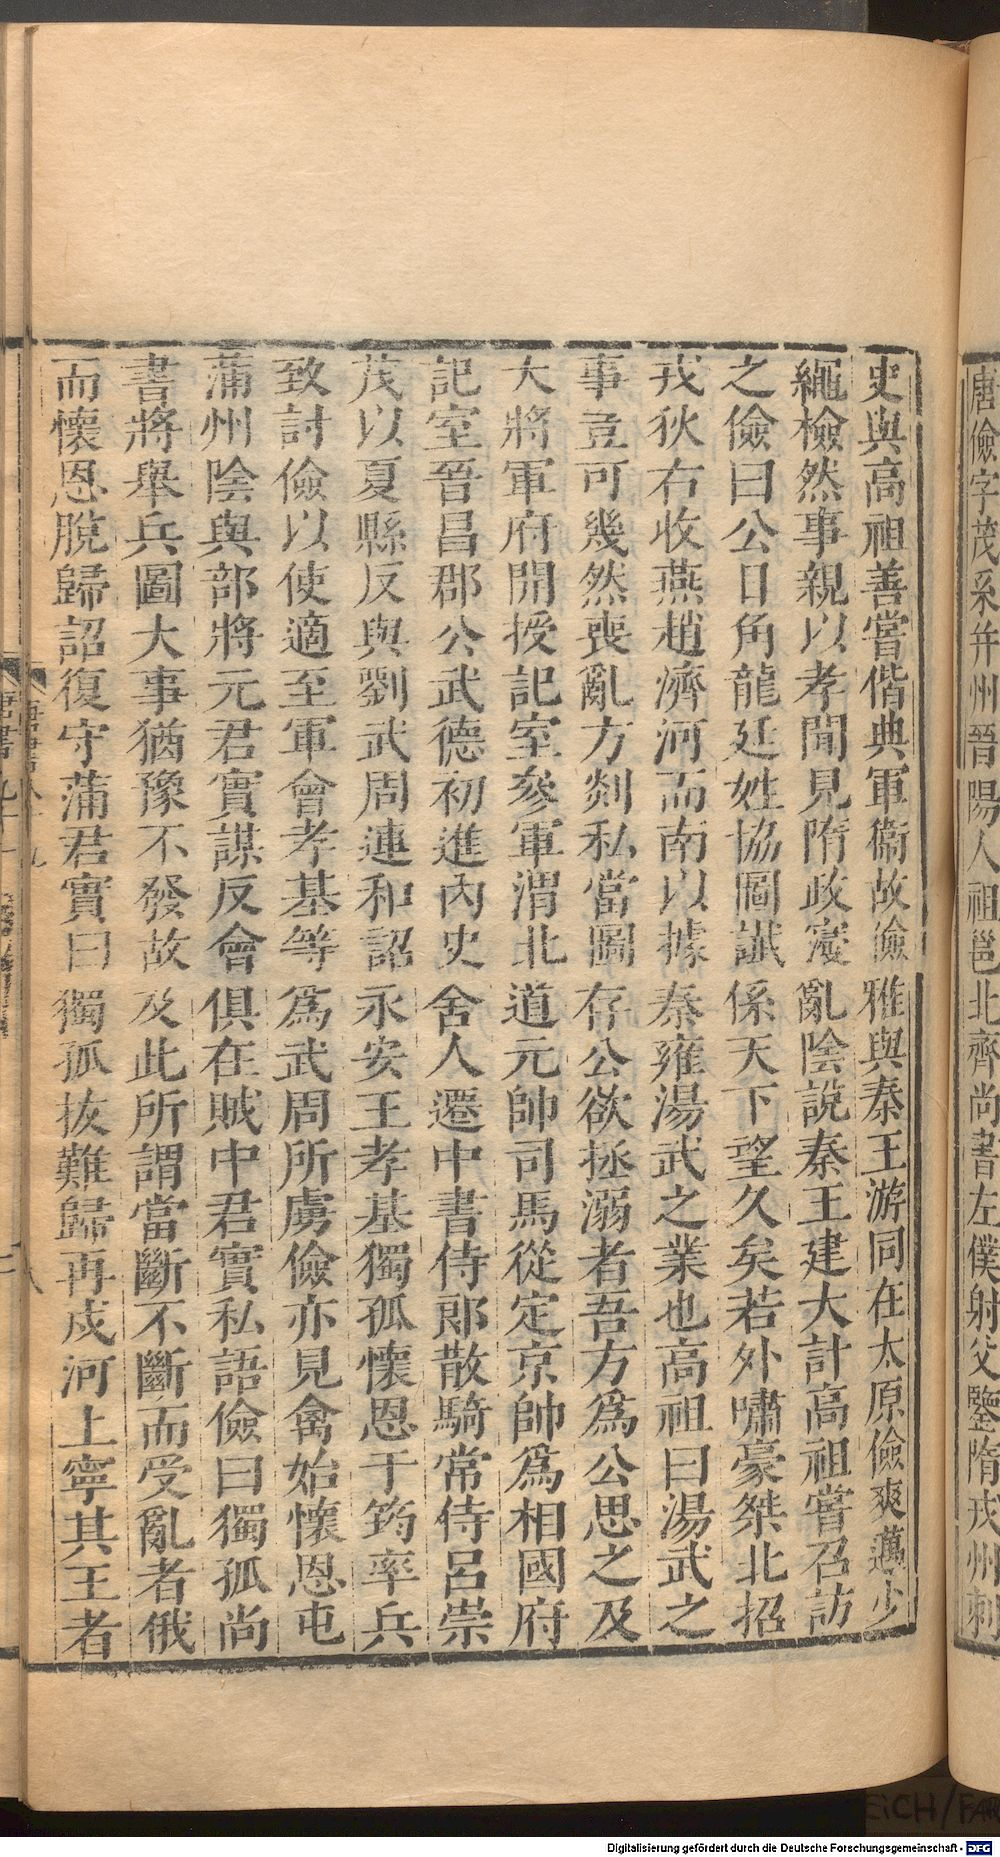 唐儉字茂系并州晉陽人祖邕北齊尚書左僕射父鑒隋戎州刺
史與高祖善嘗偕典軍衞故儉雅與秦王游同在太原儉爽邁少
繩檢然事親以孝聞見隋政寖亂陰說秦王建大計高祖嘗召訪
之儉曰公日角龍廷姓協圖讖係天下望久矣若外嘯豪桀北招
戎狄右收燕趙濟河而南以據秦雍湯武之業也高祖曰湯武之
事豈可幾然喪亂方剡私當圖存公欲拯溺者吾方爲公思之及
大將軍府開授記室參軍渭北道元帥司馬從定京師爲相國府
記室晉昌郡公武德初進內史舍人遷中書侍郎散騎常侍呂崇
茂以夏縣反與劉武周連和詔永安王孝基獨孤懷恩于筠率兵
致討儉以使適至軍會孝基等爲武周所虜儉亦見禽始懷恩屯
蒲州陰與部將元君實謀反會俱在賊中君實私語儉曰獨孤尚
書將舉兵圖大事猶豫不發故及此所謂當斷不斷而受亂者俄
而懷恩脫歸詔復守蒲君實曰獨孤拔難歸再戍河上寧其王者
Digitalisierung gefördert durch die Deutsche Forschungsgemeinschaft - DFG